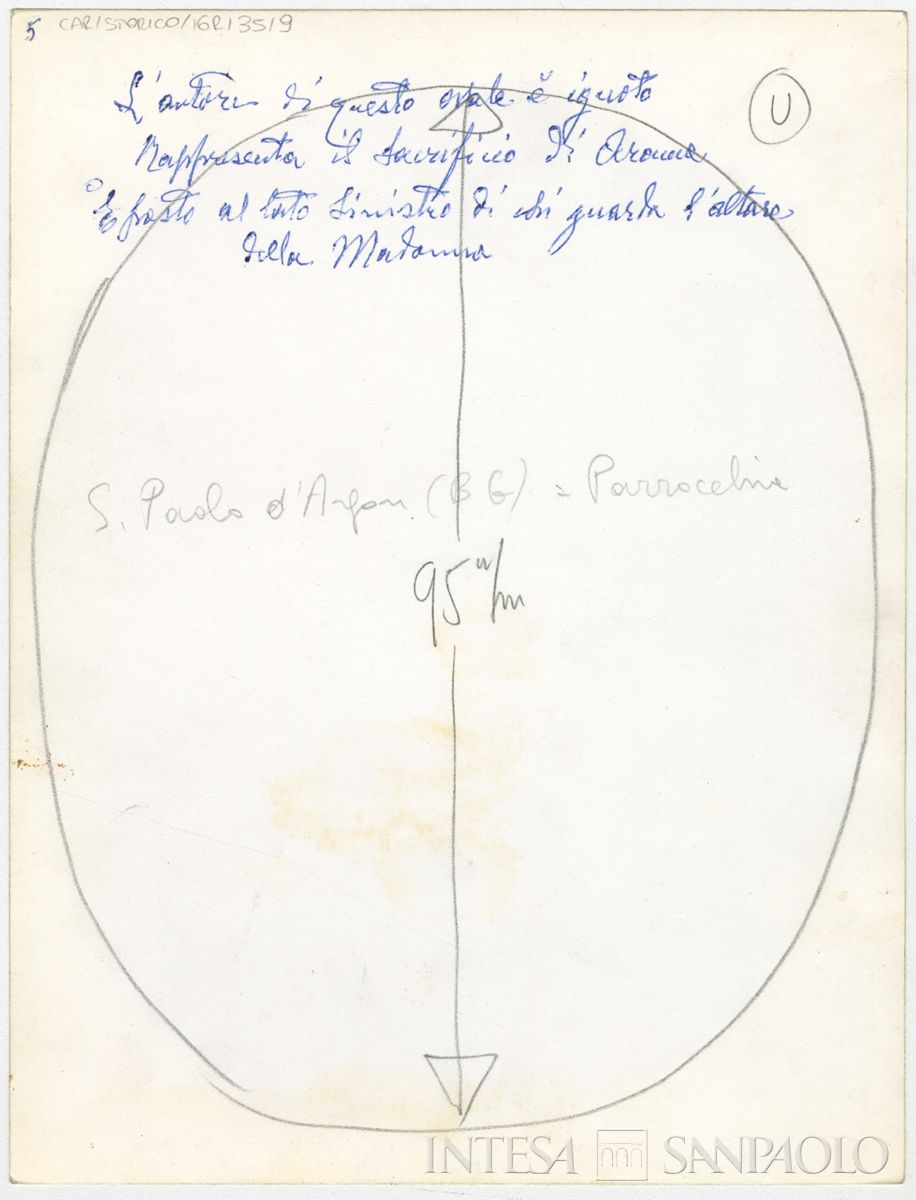 5 CAR/STORICO/16R/35/9
L'autore di questo ovale è ignoto
U
Rappresenta il sacrificio di Aronne
È posto al lato sinistro di chi guarda l'altare
della Madonna
S. Paolo d'Argon (BG) = Parrocchia
95 m/m
INTESA SANPAOLO